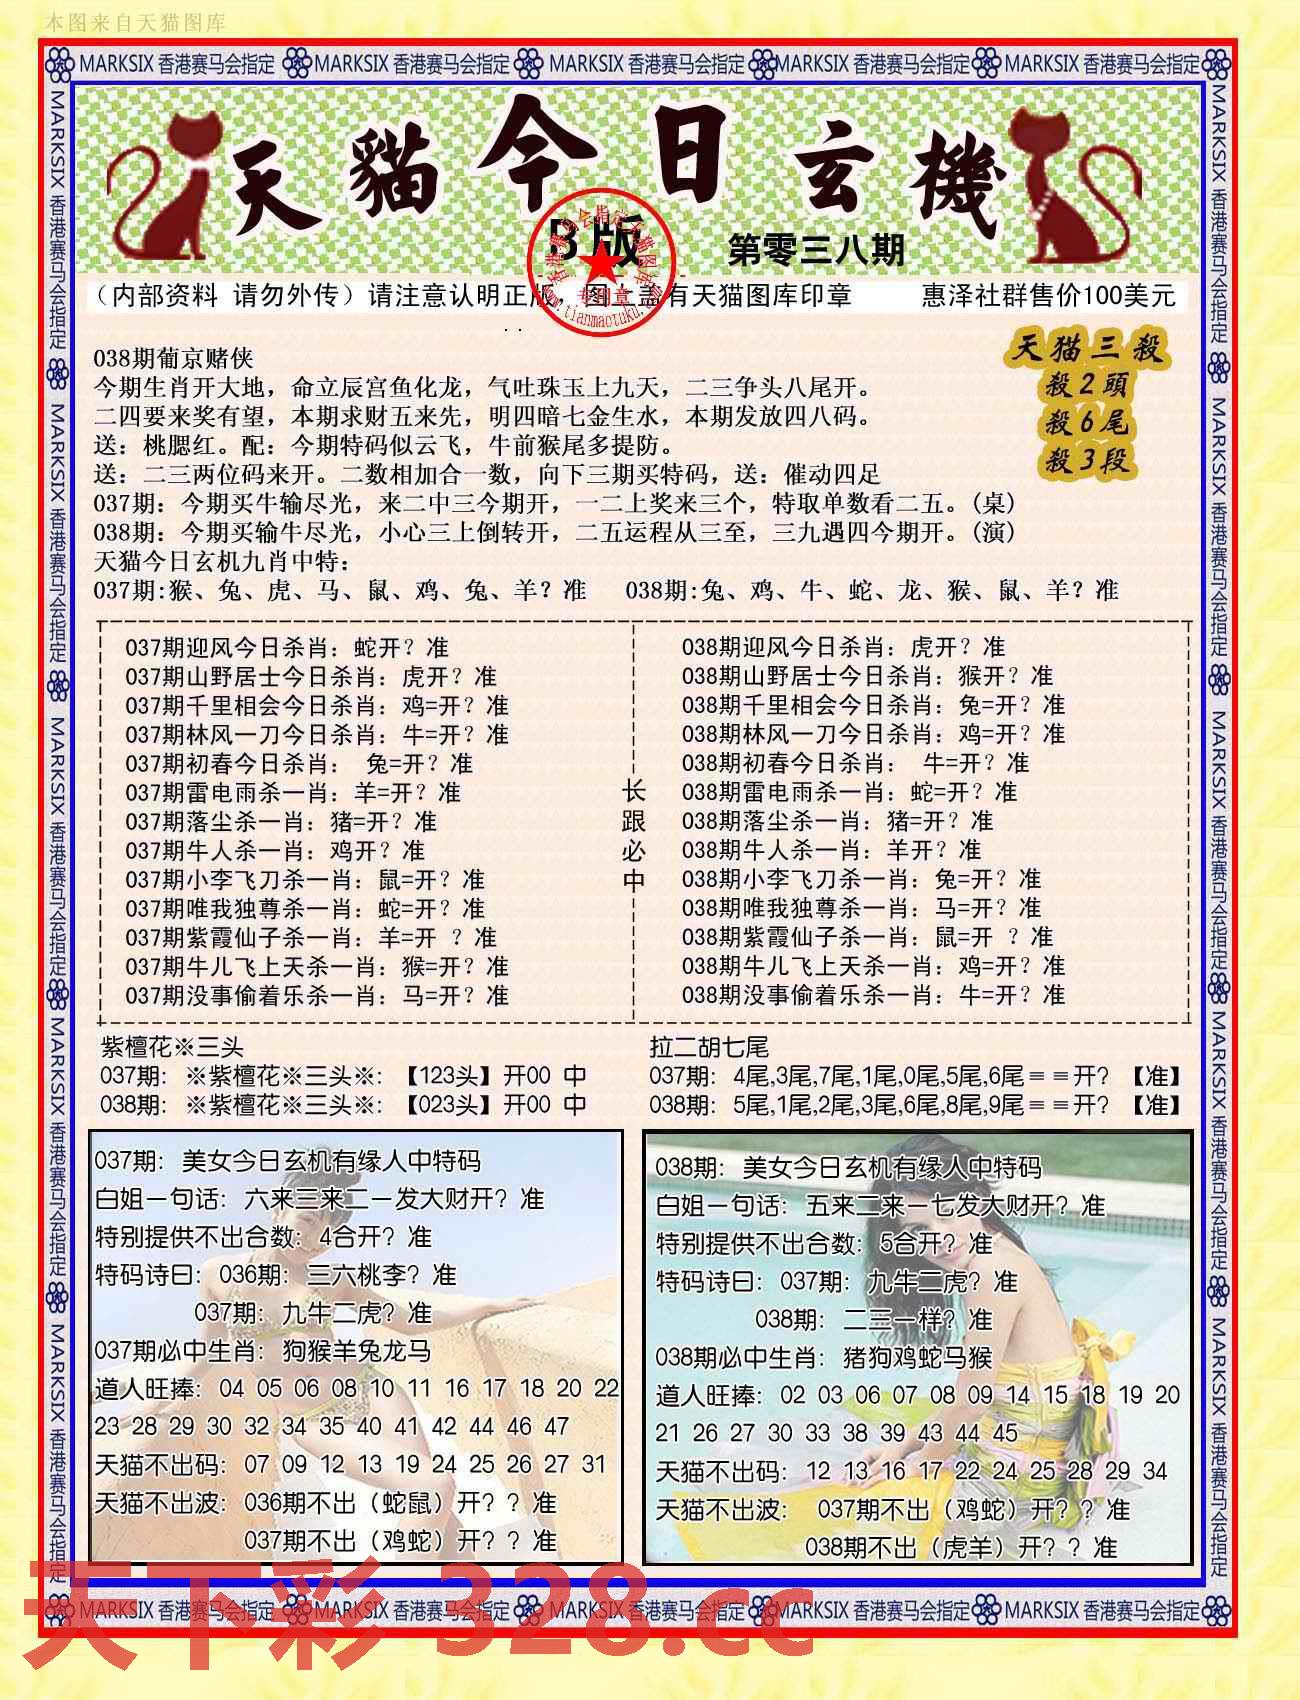 本图来自天猫图库
MARKSIX 香港赛马会指定 MARKSIX 香港赛马会指定 MARKSIX 香港赛马会指定 MARKSIX 香港赛马会指定 MARKSIX 香港赛马会指定
MARKSIX 香港赛马会指定 MARKSIX 香港赛马会指定 MARKSIX 香港赛马会指定 MARKSIX 香港赛马会指定 MARKSIX 香港赛马会指定
天貓今日玄機
B版
第零三八期
专用章
www.tianmaotuku.com
（内部资料 请勿外传）请注意认明正版，图上盖有天猫图库印章 惠泽社群售价100美元
天猫三殺
殺2頭
殺6尾
殺3段
038期葡京赌侠
今期生肖开大地，命立辰宫鱼化龙，气吐珠玉上九天，二三争头八尾开。
二四要来奖有望，本期求财五来先，明四暗七金生水，本期发放四八码。
送：桃腮红。配：今期特码似云飞，牛前猴尾多提防。
送：二三两位码来开。二数相加合一数，向下三期买特码，送：催动四足
037期：今期买牛输尽光，来二中三今期开，一二上奖来三个，特取单数看二五。(桌)
038期：今期买输牛尽光，小心三上倒转开，二五运程从三至，三九遇四今期开。(演)
天猫今日玄机九肖中特：
037期:猴、兔、虎、马、鼠、鸡、兔、羊？准 038期:兔、鸡、牛、蛇、龙、猴、鼠、羊？准
037期迎风今日杀肖：蛇开？准
037期山野居士今日杀肖：虎开？准
037期千里相会今日杀肖：鸡=开？准
037期林风一刀今日杀肖：牛=开？准
037期初春今日杀肖： 兔=开？准
037期雷电雨杀一肖：羊=开？准
037期落尘杀一肖：猪=开？准
037期牛人杀一肖：鸡开？准
037期小李飞刀杀一肖：鼠=开？准
037期唯我独尊杀一肖：蛇=开？准
037期紫霞仙子杀一肖：羊=开 ？准
037期牛儿飞上天杀一肖：猴=开？准
037期没事偷着乐杀一肖：马=开？准
长跟必中
038期迎风今日杀肖：虎开？准
038期山野居士今日杀肖：猴开？准
038期千里相会今日杀肖：兔=开？准
038期林风一刀今日杀肖：鸡=开？准
038期初春今日杀肖： 牛=开？准
038期雷电雨杀一肖：蛇=开？准
038期落尘杀一肖：猪=开？准
038期牛人杀一肖：羊开？准
038期小李飞刀杀一肖：兔=开？准
038期唯我独尊杀一肖：马=开？准
038期紫霞仙子杀一肖：鼠=开 ？准
038期牛儿飞上天杀一肖：鸡=开？准
038期没事偷着乐杀一肖：牛=开？准
紫檀花※三头
037期：※紫檀花※三头※：【123头】开00 中
038期：※紫檀花※三头※：【023头】开00 中
拉二胡七尾
037期：4尾,3尾,7尾,1尾,0尾,5尾,6尾＝＝开？【准】
038期：5尾,1尾,2尾,3尾,6尾,8尾,9尾＝＝开？【准】
037期：美女今日玄机有缘人中特码
白姐一句话：六来三来二一发大财开？准
特别提供不出合数：4合开？准
特码诗曰：036期：三六桃李？准
037期：九牛二虎？准
037期必中生肖：狗猴羊兔龙马
道人旺捧：04 05 06 08 10 11 16 17 18 20 22
23 28 29 30 32 34 35 40 41 42 44 46 47
天猫不出码：07 09 12 13 19 24 25 26 27 31
天猫不出波：036期不出（蛇鼠）开？？准
037期不出（鸡蛇）开？？准
038期：美女今日玄机有缘人中特码
白姐一句话：五来二来一七发大财开？准
特别提供不出合数：5合开？准
特码诗曰：037期：九牛二虎？准
038期：二三一样？准
038期必中生肖：猪狗鸡蛇马猴
道人旺捧：02 03 06 07 08 09 14 15 18 19 20
21 26 27 30 33 38 39 43 44 45
天猫不出码：12 13 16 17 22 24 25 28 29 34
天猫不出波： 037期不出（鸡蛇）开？？准
038期不出（虎羊）开？？准
MARKSIX 香港赛马会指定 MARKSIX 香港赛马会指定 MARKSIX 香港赛马会指定 MARKSIX 香港赛马会指定 MARKSIX 香港赛马会指定
MARKSIX 香港赛马会指定 MARKSIX 香港赛马会指定 MARKSIX 香港赛马会指定 MARKSIX 香港赛马会指定 MARKSIX 香港赛马会指定
天下彩 328.cc